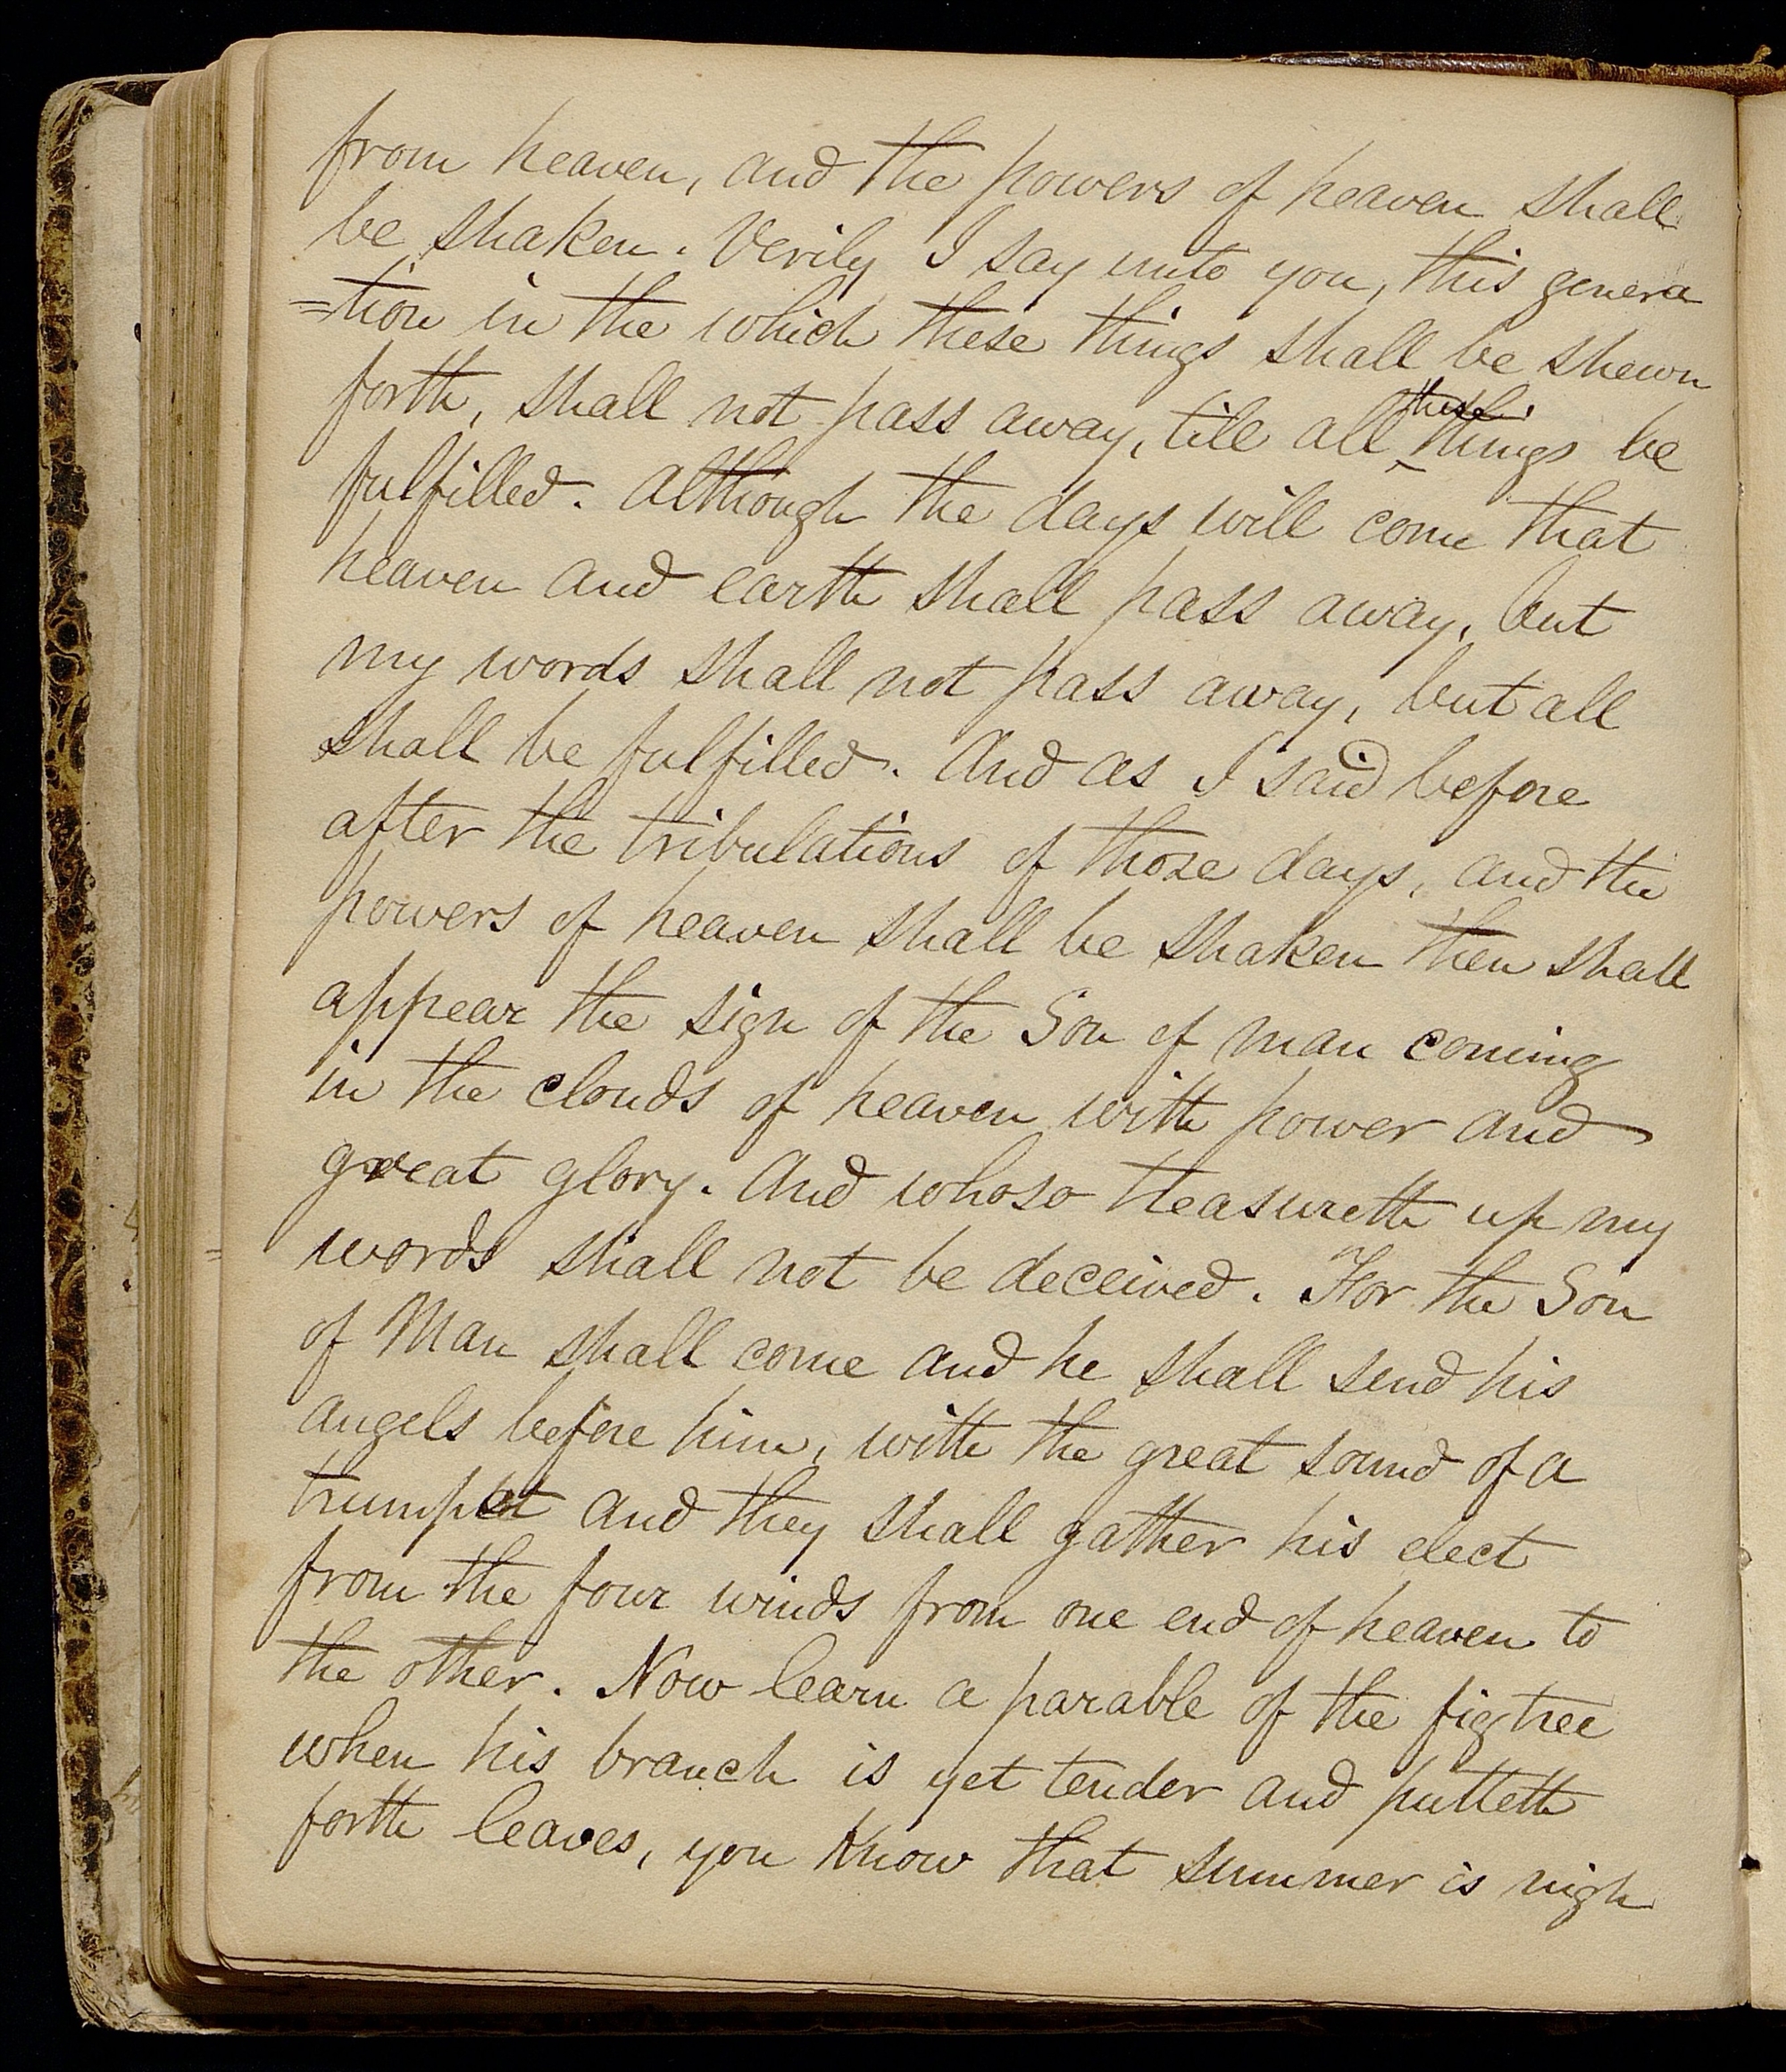 from heaven, and the powers of heaven shall
be shaken. Verily I say unto you, this genera
=tion in the which these things shall be shewn
forth, shall not pass away, till all these things be
fulfilled. Although the days will come that
heaven and earth shall pass away, but
my words shall not pass away, but all
shall be fulfilled. And as I said before
after the tribulations of those days, and the
powers of heaven shall be shaken then shall
appear the sign of the Son of man coming
in the clouds of heaven with power and
great glory. And whoso treasureth up my
words shall not be deceived. For the Son
of Man shall come and he shall send his
angels before him, with the great sound of a
trumpet and they shall gather his elect
from the four winds from one end of heaven to
the other. Now learn a parable of the figtree
when his branch is yet tender and putteth
forth leaves, you know that summer is nigh